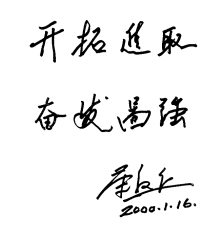 开拓進取
奋发啚强
2000.1.16.